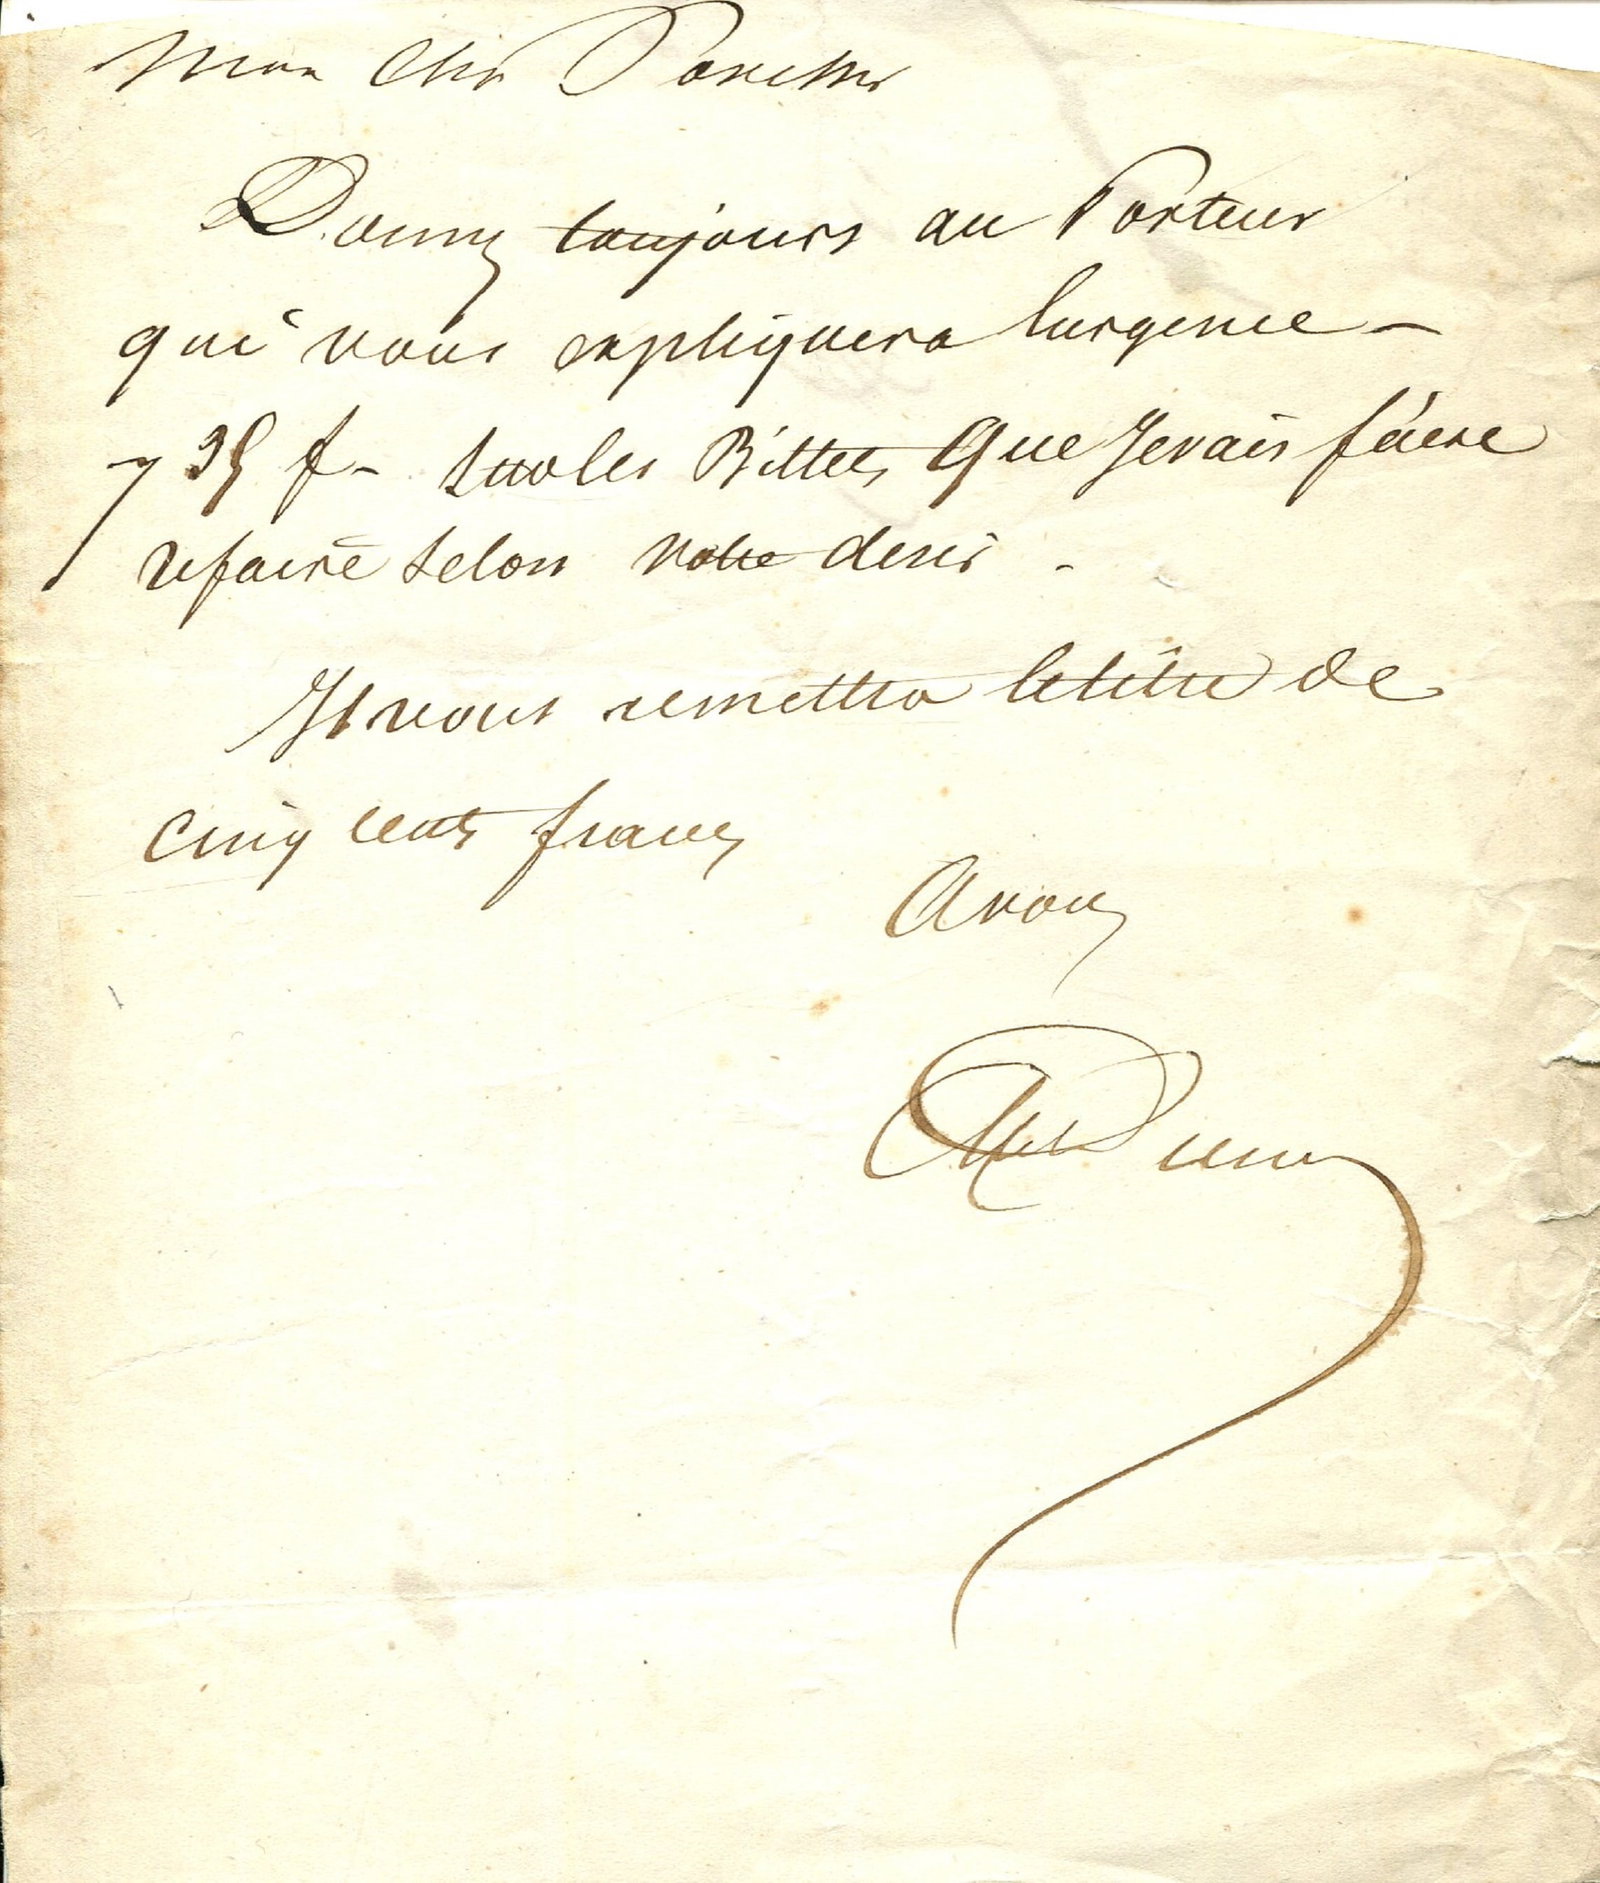 Mon cher Porcher
Donnez toujours au Porteur
qui vous expliquera lurgence –
735 f – sur les Billets Que Je vais faire
refaire selon votre desir .
Il vous remettra le titre de
cinq cents francs
A vous
Alex Dumas